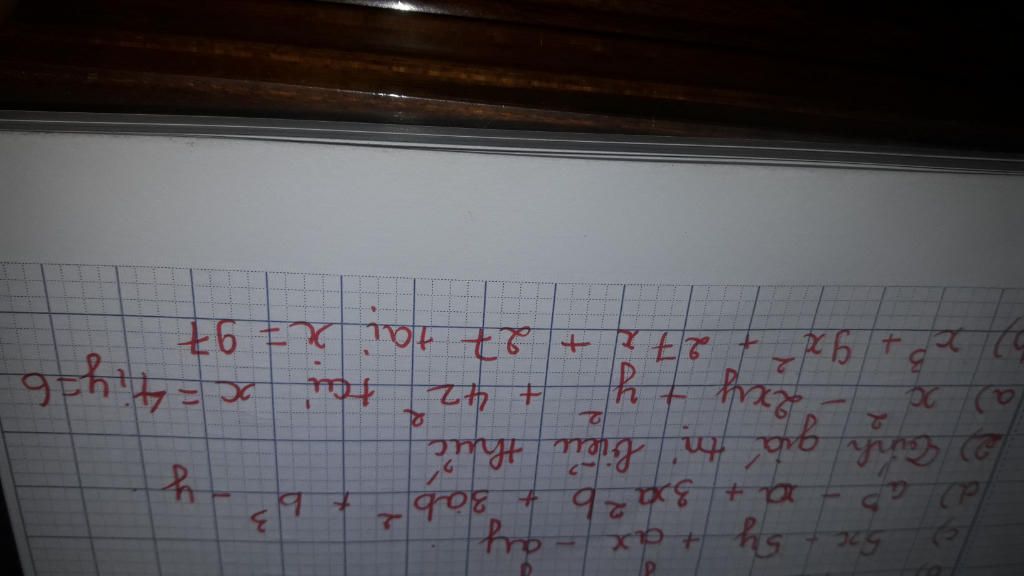 c) 5x - 5y + ax - ay
d) a³ - xa + 3a²b + 3ab² + b³ - y
2) Tính giá trị biểu thức
a) x² - 2xy + y² + 4z² tại x = 4; y = 6
b) x³ + 9x² + 27x + 27 tại x = 97